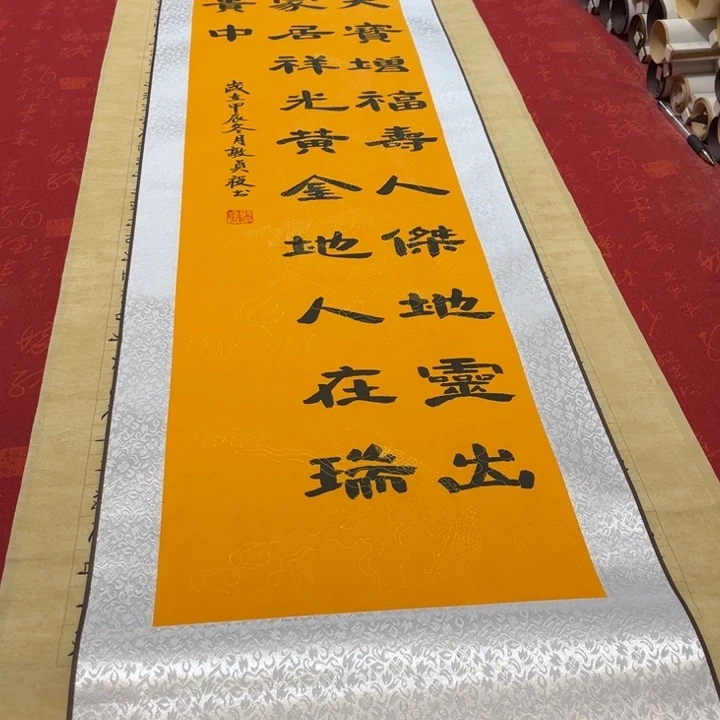 天寶增福壽人傑地靈出
家居祥光黃金地人在瑞
貴中
歲在甲辰冬月